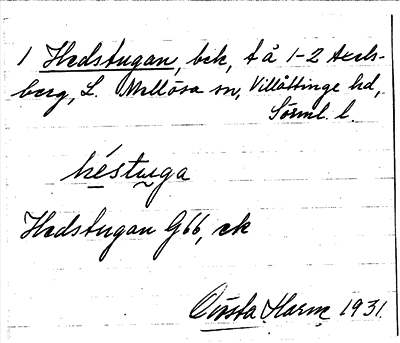 1 Hedstugan, bek, t å 1-2 Axels-
berg, L. Mellösa sn, Villåttinge hd,
Sörml. l.
héstuga
Hedstugan G66, ek
Gösta Harm 1931.